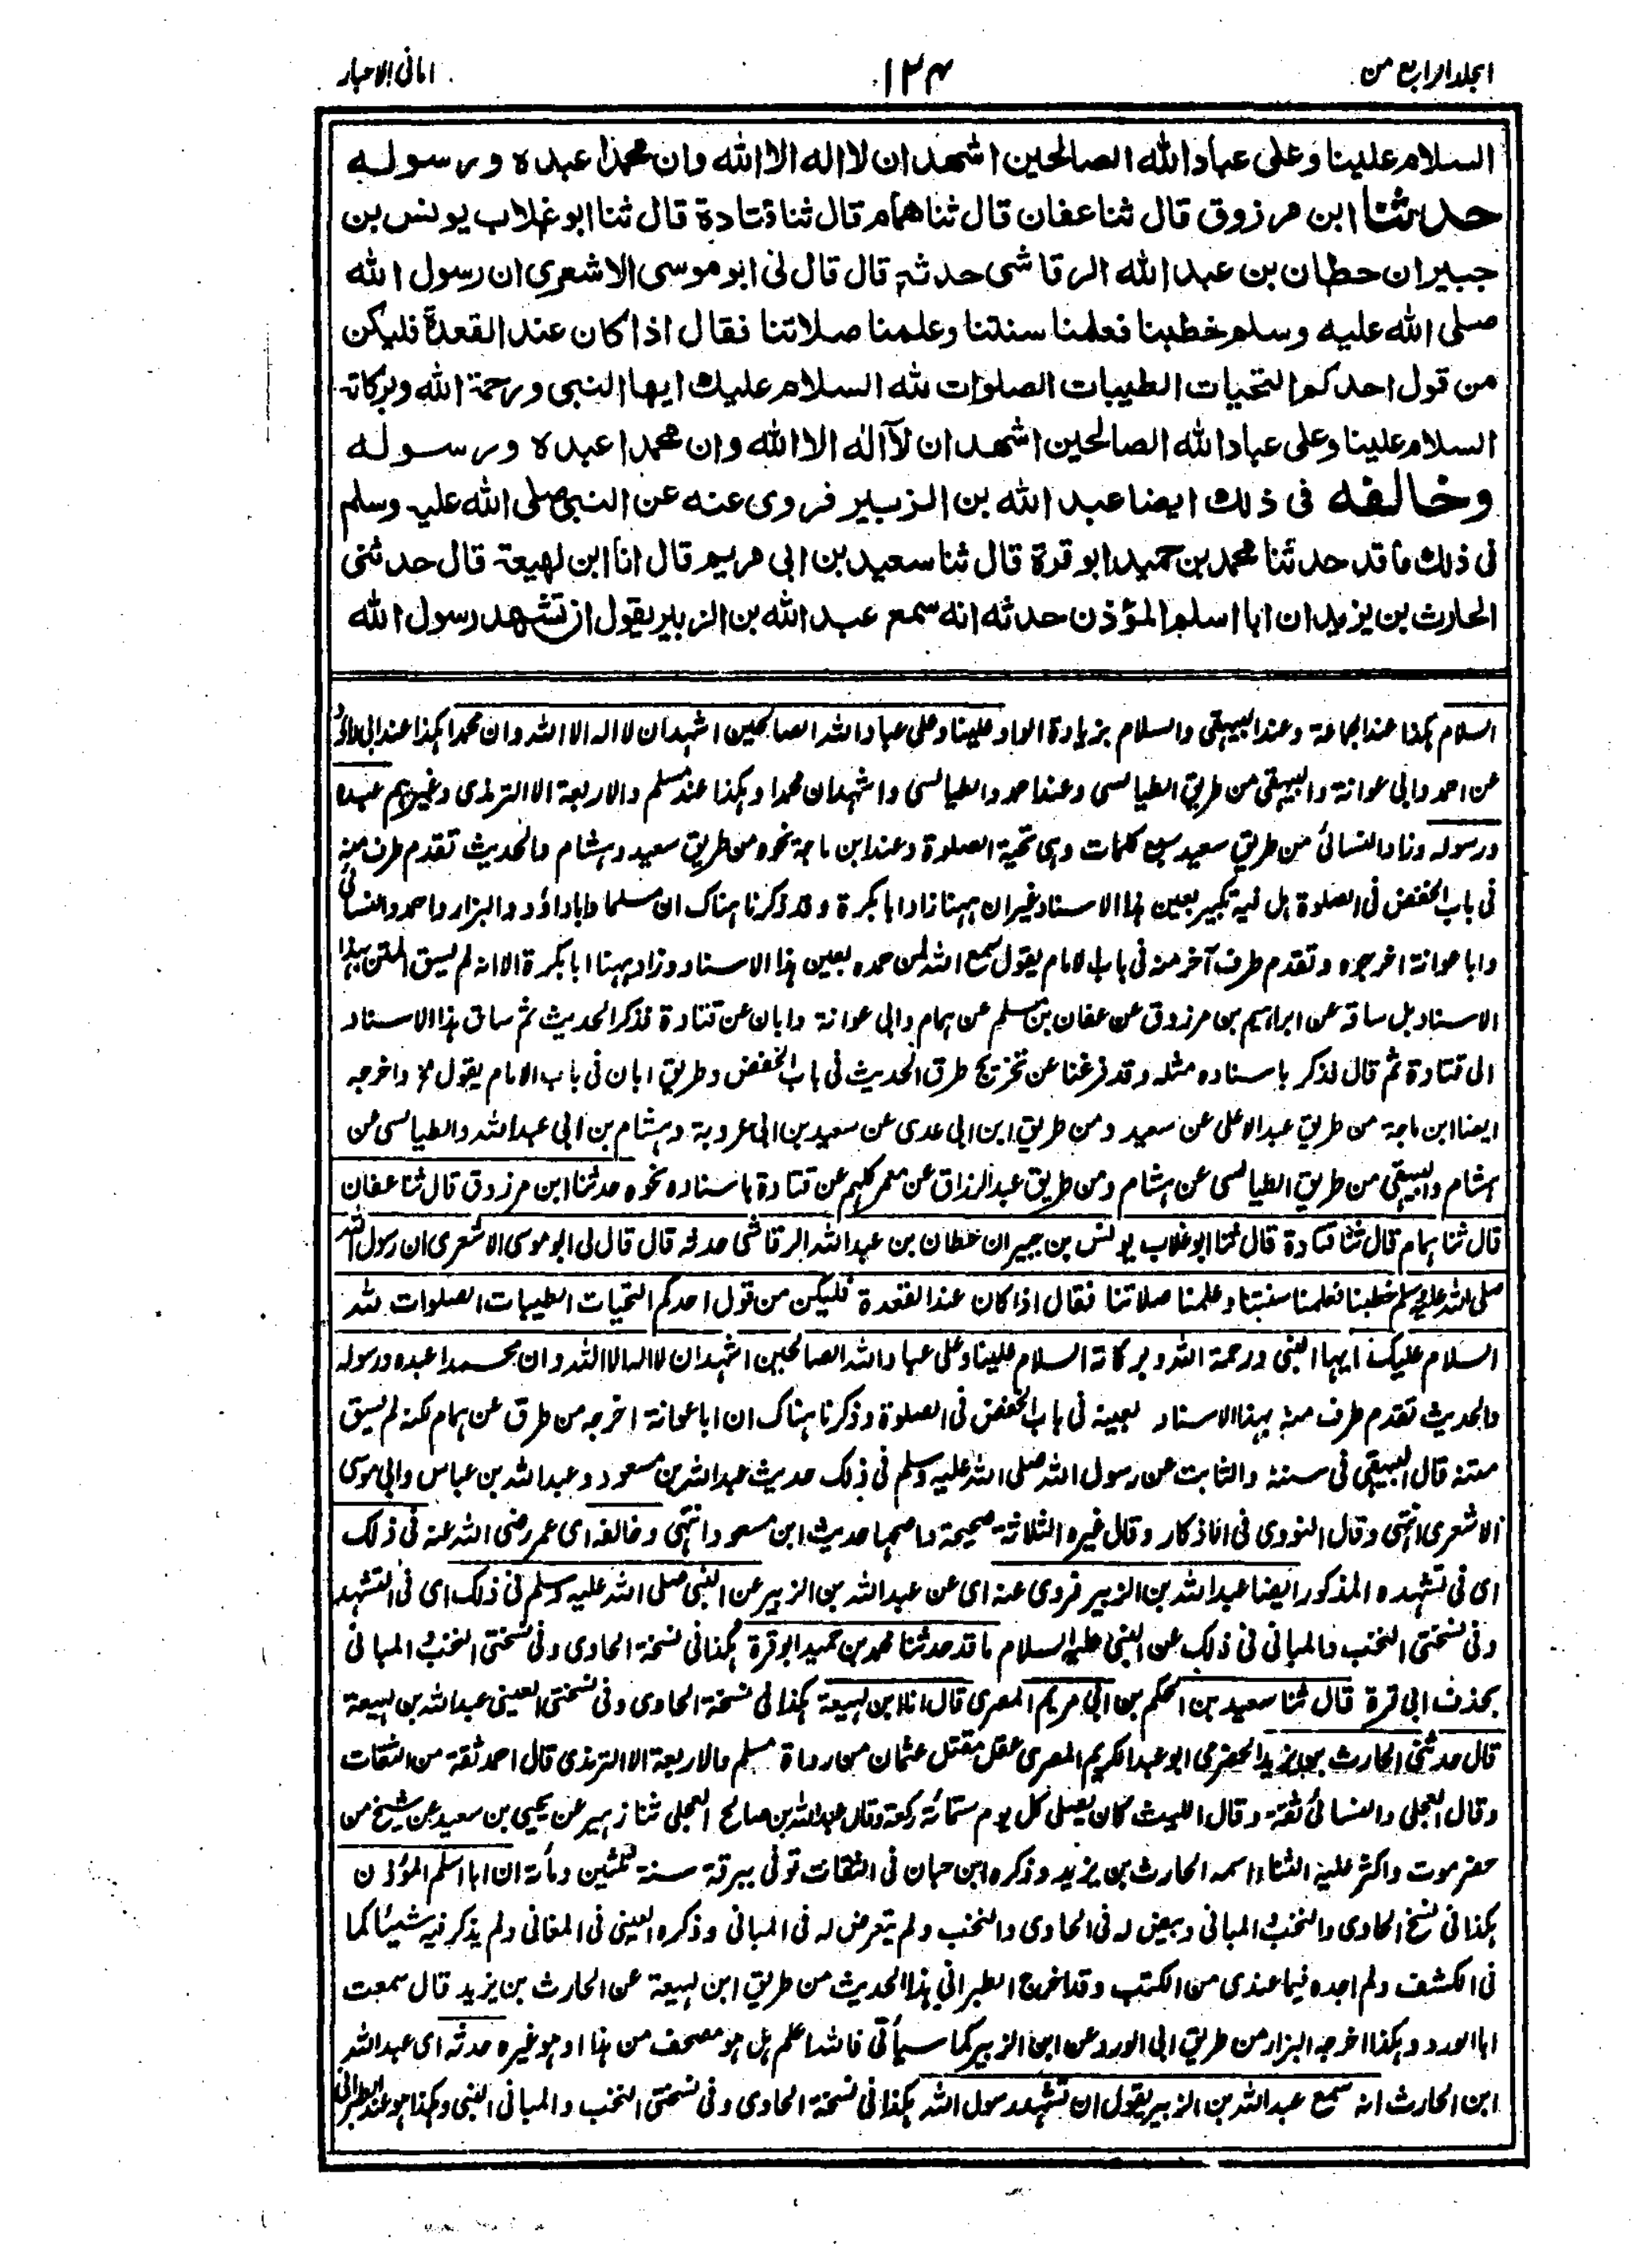 المجلد الرابع من ١٣٤ امانى الاحبار
السلام علينا وعلى عباد الله الصالحين اشهد ان لا اله الا الله وان محمدا عبده ورسوله
حدثنا ابن مرزوق قال ثنا عفان قال ثنا همام قال ثنا قتادة قال ثنا ابو غلاب يونس بن
جبير ان حطان بن عبد الله الرقاشى حدثه قال قال لى ابو موسى الاشعرى ان رسول الله
صلى الله عليه وسلم خطبنا فعلمنا سنتنا وعلمنا صلاتنا فقال اذا كان عند القعدة فليكن
من قول احدكم التحيات الطيبات الصلوات لله السلام عليك ايها النبى ورحمة الله وبركاته
السلام علينا وعلى عباد الله الصالحين اشهد ان لآ اله الا الله وان محمدا عبده ورسوله
وخالفه فى ذلك ايضا عبد الله بن الزبير فروى عنه عن النبى صلى الله عليه وسلم
فى ذلك ما قد حدثنا محمد بن حميد ابو قرة قال ثنا سعيد بن ابى مريم قال انا ابن لهيعة قال حدثنى
الحارث بن يزيد ان ابا اسلم المؤذن حدثه انه سمع عبد الله بن الزبير يقول ان تشهد رسول الله
السلام هكذا عند الجماعة وعند البيهقى والسلام بزيادة الواو علينا وعلى عباد الله الصالحين اشهد ان لا اله الا الله وان محمدا هكذا عند ابى داؤد
عن احمد وابى عوانة والبيهقى من طريق الطيالسى وعند احمد والطيالسى واشهد ان محمدا وهكذا عند مسلم والاربعة الا الترمذى وغيرهم عبده
ورسوله وزاد النسائى من طريق سعيد سبع كلمات وهى تحية الصلوة وعند ابن ماجة نحوه من طريق سعيد وهشام والحديث تقدم طرف منه
فى باب الخفض فى الصلوة هل فيه تكبير بعين هذا الاسناد غير ان ههنا زاد ابا بكرة وقد ذكرنا هناك ان مسلما وابا داؤد والبزار واحمد والنسائى
وابا عوانة اخرجوه وتقدم طرف آخر منه فى باب الامام يقول سمع الله لمن حمده بعين هذا الاسناد وزاد ههنا ابا بكرة الا انه لم يسق المتن بهذا
الاسناد بل ساقه عن ابراهيم بن مرزوق عن عفان بن مسلم عن همام وابى عوانة وابان عن قتادة فذكر الحديث ثم ساق هذا الاسناد
الى قتادة ثم قال فذكر باسناده مثله وقد فرغنا عن تخريج طرق الحديث فى باب الخفض وطريق ابان فى باب الامام يقول الخ واخرجه
ايضا ابن ماجة من طريق عبد الاعلى عن سعيد ومن طريق ابن ابى عدى عن سعيد بن ابى عروبة وهشام بن ابى عبد الله والطيالسى عن
هشام والبيهقى من طريق الطيالسى عن هشام ومن طريق عبد الرزاق عن معمر كلهم عن قتادة باسناده نحوه حدثنا ابن مرزوق قال ثنا عفان
قال ثنا همام قال ثنا قتادة قال ثنا ابو غلاب يونس بن جبير ان حطان بن عبد الله الرقاشى حدثه قال قال لى ابو موسى الاشعرى ان رسول الله
صلى الله عليه وسلم خطبنا فعلمنا سنتنا وعلمنا صلاتنا فقال اذا كان عند القعدة فليكن من قول احدكم التحيات الطيبات الصلوات لله
السلام عليك ايها النبى ورحمة الله وبركاته السلام علينا وعلى عباد الله الصالحين اشهد ان لا اله الا الله وان محمدا عبده ورسوله
والحديث تقدم طرف منه بهذا الاسناد بعينه فى باب الخفض فى الصلوة وذكرنا هناك ان ابا عوانة اخرجه من طرق عن همام لكنه لم يسق
متنه قال البيهقى فى سننه والثابت عن رسول الله صلى الله عليه وسلم فى ذلك حديث عبد الله بن مسعود وعبد الله بن عباس وابى موسى
الاشعرى انتهى وقال النووى فى الاذكار وقال غيره الثلاثة صحيحة واصحها حديث ابن مسعود انتهى وخالفه اى عمر رضى الله عنه فى ذلك
اى فى تشهده المذكور ايضا عبد الله بن الزبير فروى عنه اى عن عبد الله بن الزبير عن النبى صلى الله عليه وسلم فى ذلك اى فى التشهد
وفى نسختى النخب والمبانى فى ذلك عن النبى عليه السلام ما قد حدثنا محمد بن حميد ابو قرة هكذا فى نسخة الحاوى وفى نسختى النخب المبانى
بحذف ابى قرة قال ثنا سعيد بن الحكم بن ابى مريم المصرى قال انا ابن لهيعة هكذا فى نسخة الحاوى وفى نسختى العينى عبد الله بن لهيعة
قال حدثنى الحارث بن يزيد الحضرمى ابو عبد الكريم المصرى عقل مقتل عثمان من رواة مسلم والاربعة الا الترمذى قال احمد ثقة من الثقات
وقال العجلى والنسائى ثقة وقال الليث كان يصلى كل يوم ستمائة ركعة وقال عبد الله بن صالح العجلى ثنا زهير عن يحيى بن سعيد عن شيخ من
حضرموت واكثر عليه الثناء اسمه الحارث بن يزيد وذكره ابن حبان فى الثقات توفى ببرقة سنة ثلثين ومأة ان ابا اسلم المؤذن
هكذا فى نسخ الحاوى والنخب المبانى وبيض له فى الحاوى والنخب ولم يتعرض له فى المبانى وذكره العينى فى المغانى ولم يذكر فيه شيئا كما
فى الكشف ولم اجده فيما عندى من الكتب وقد اخرج الطبرانى هذا الحديث من طريق ابن لهيعة عن الحارث بن يزيد قال سمعت
ابا الورد وهكذا اخرجه البزار من طريق ابى الورد عن ابن الزبير كما سيأتى فالله اعلم هل هو مصحف من هذا او هو غيره حدثه اى عبد الله
ابن الحارث انه سمع عبد الله بن الزبير يقول ان تشهد رسول الله هكذا فى نسخة الحاوى وفى نسختى النخب والمبانى النبى وهكذا هو عند الطبرانى